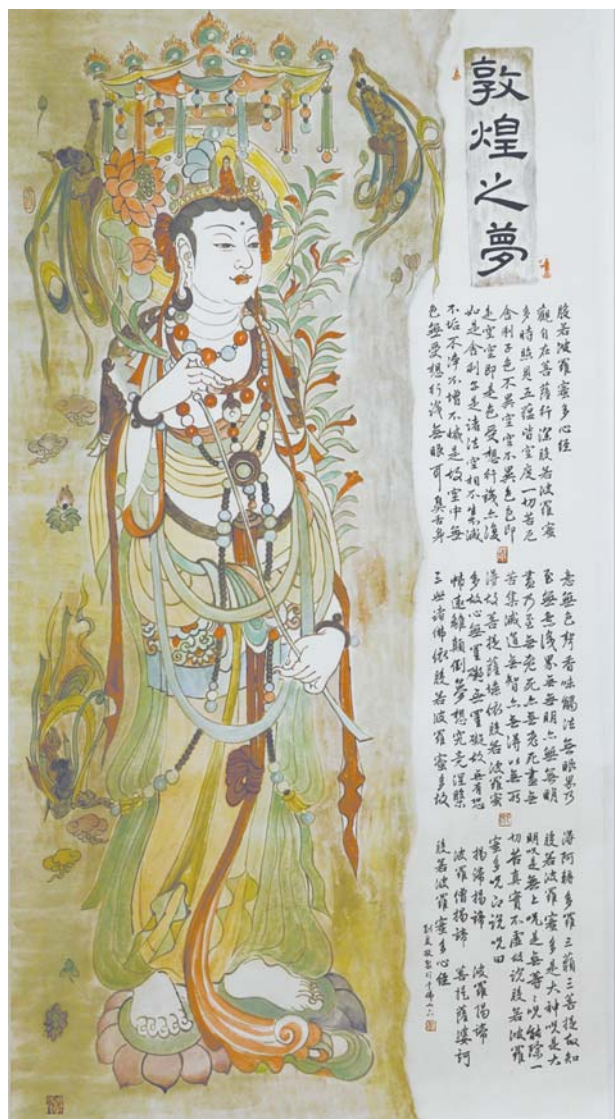 敦煌之夢
般若波羅蜜多心經
觀自在菩薩行深般若波羅蜜
多時照見五蘊皆空度一切苦厄
舍利子色不異空空不異色色即
是空空即是色受想行識亦復
如是舍利子是諸法空相不生滅
不垢不淨不增不減是故空中無
色無受想行識無眼耳鼻舌身
意無色聲香味觸法無眼界乃
至無意識界無無明亦無無明
盡乃至無老死亦無老死盡無
苦集滅道無智亦無得以無所
得故菩提薩埵依般若波羅蜜
多故心無罣礙無罣礙故無有恐
怖遠離顛倒夢想究竟涅槃
三世諸佛依般若波羅蜜多故
得阿耨多羅三藐三菩提故知
般若波羅蜜多是大神咒是大
明咒是無上咒是無等〻咒能除一
切苦真實不虛故說般若波羅
蜜多咒即說咒曰
揭諦揭諦 波羅揭諦
波羅僧揭諦 菩提薩婆訶
般若波羅蜜多心經